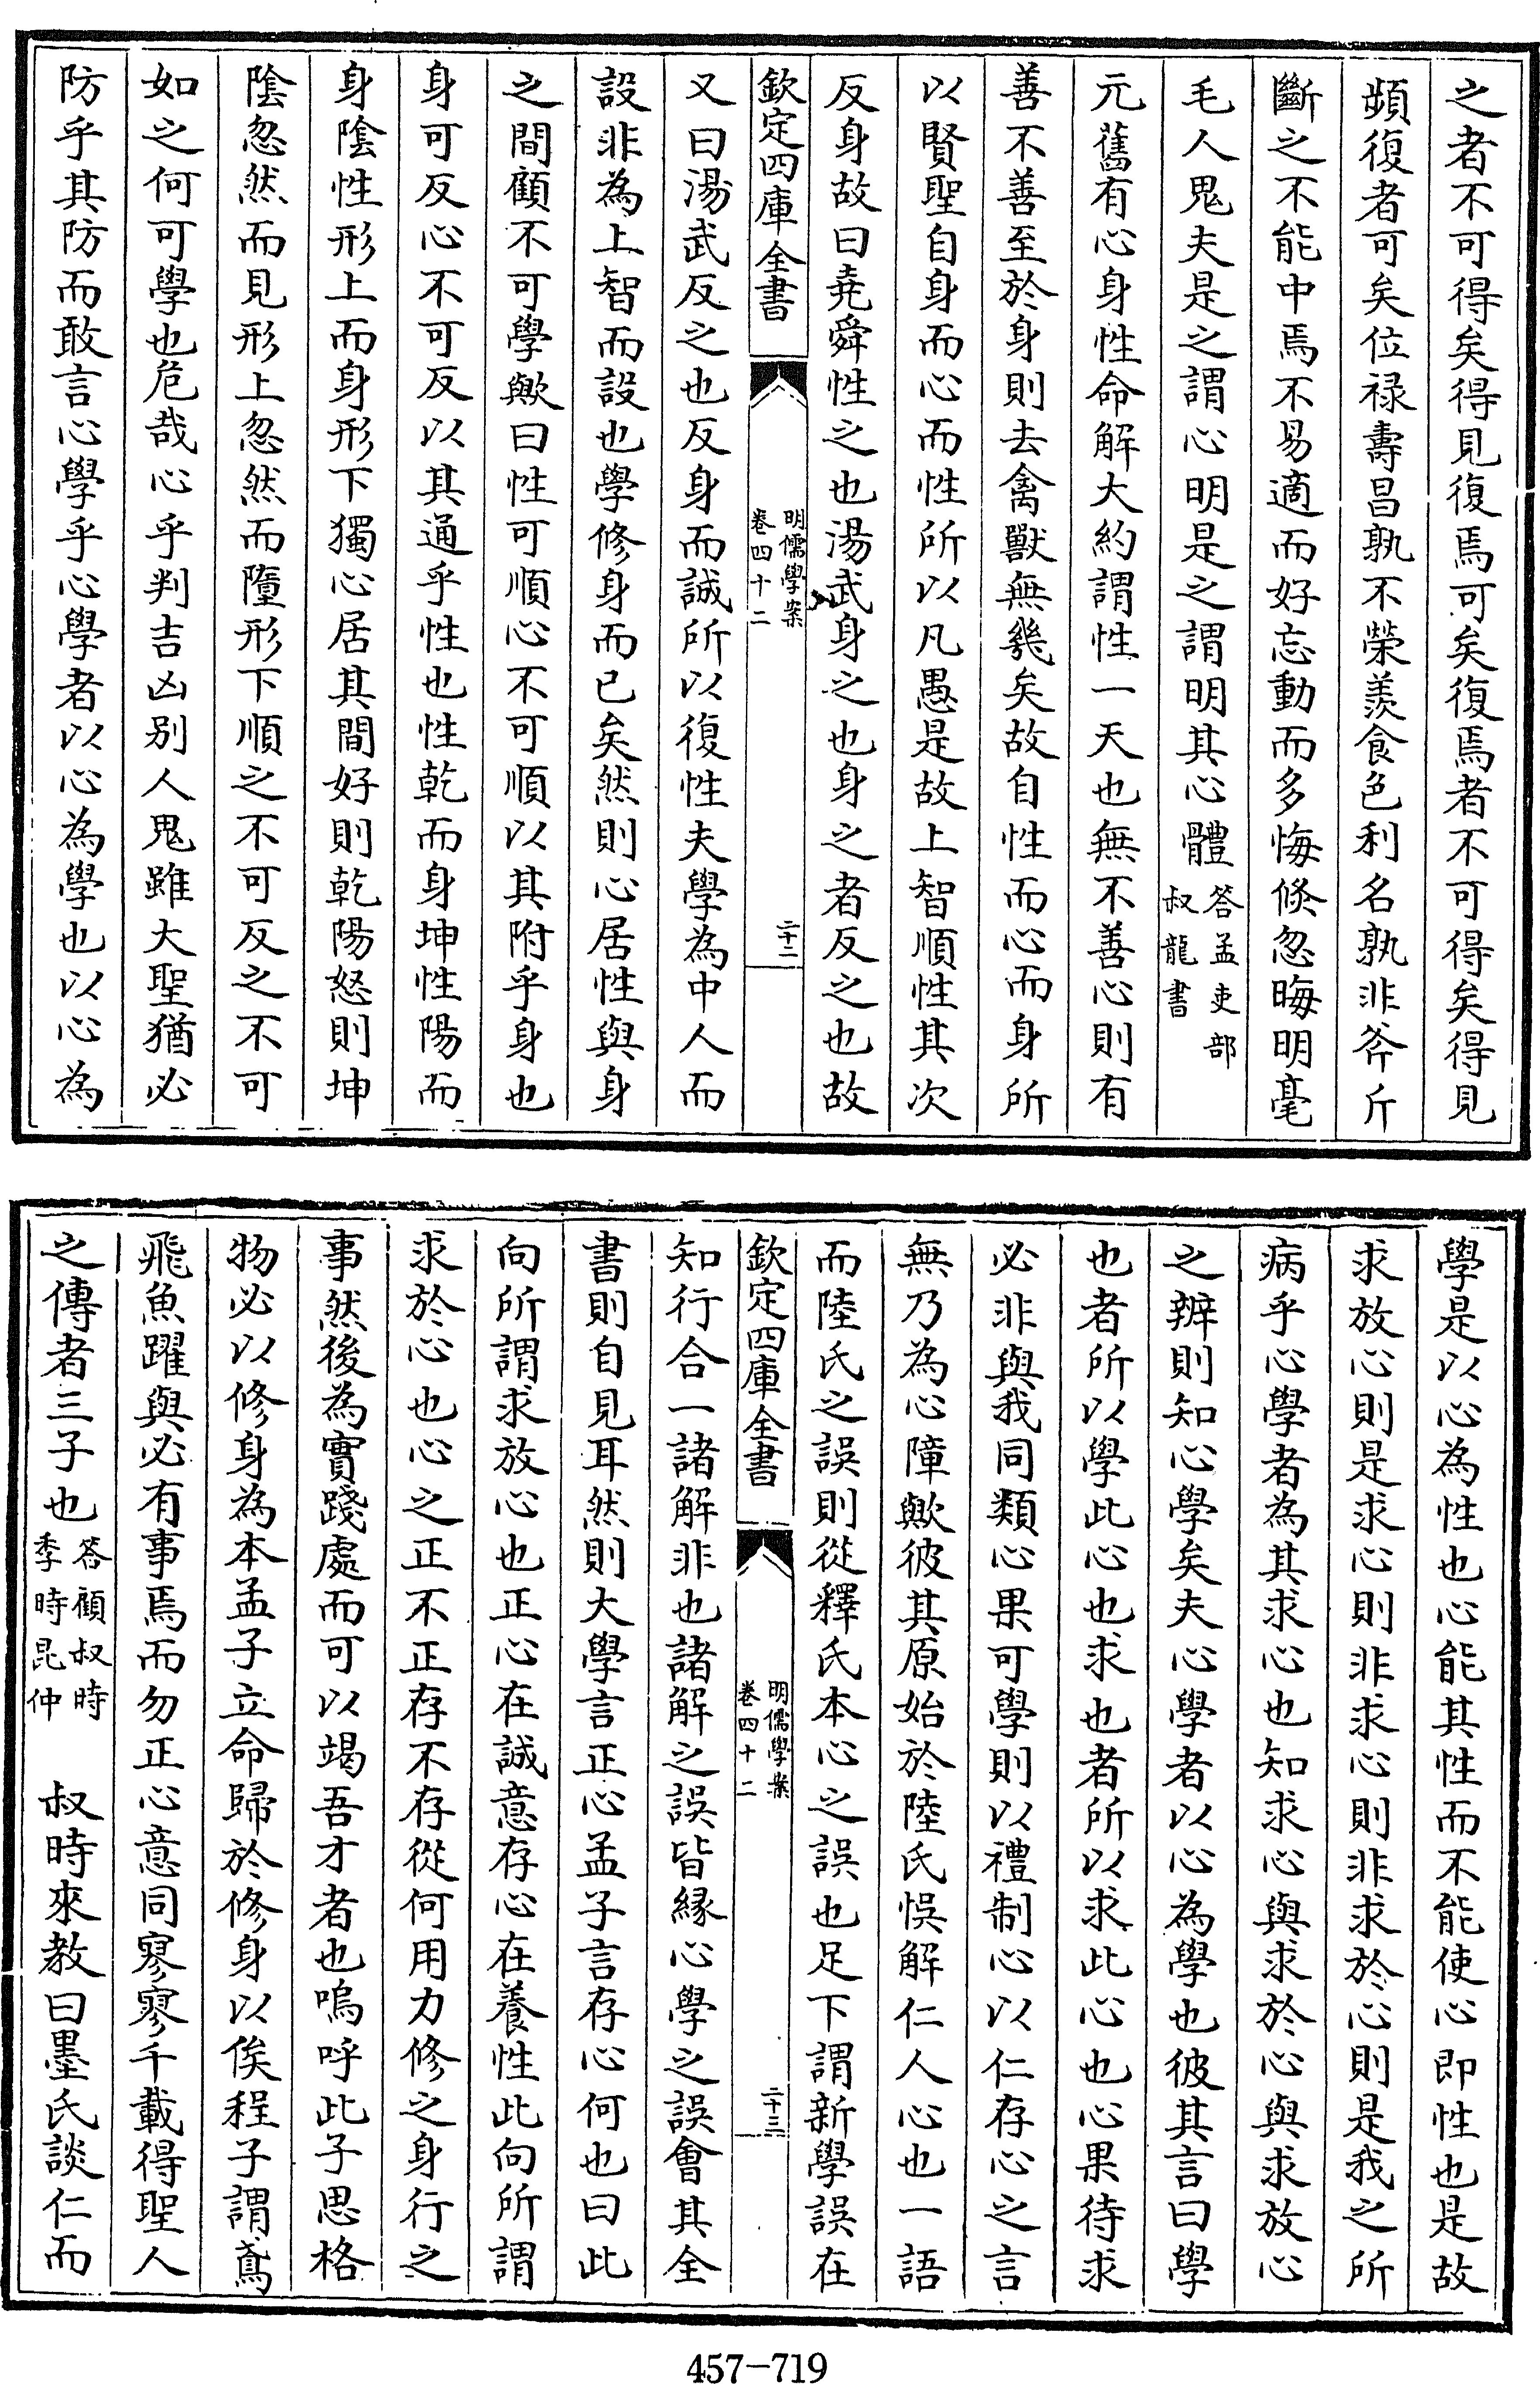 之者不可得矣得見復焉可矣復焉者不可得矣得見
頻復者可矣位禄壽昌孰不榮羨食色利名孰非斧斤
斷之不能中焉不易適而好忘動而多悔倐忽晦明毫
毛人鬼夫是之謂心明是之謂明其心體答孟吏部叔龍書
元舊有心身性命解大約謂性一天也無不善心則有
善不善至於身則去禽獸無幾矣故自性而心而身所
以賢聖自身而心而性所以凡愚是故上智順性其次
反身故曰堯舜性之也湯武身之也身之者反之也故
欽定四庫全書
明儒學案
卷四十二
二十二
又曰湯武反之也反身而誠所以復性夫學為中人而
設非為上智而設也學修身而已矣然則心居性與身
之間顧不可學歟曰性可順心不可順以其附乎身也
身可反心不可反以其通乎性也性乾而身坤性陽而
身陰性形上而身形下獨心居其間好則乾陽怒則坤
陰忽然而見形上忽然而墮形下順之不可反之不可
如之何可學也危哉心乎判吉凶别人鬼雖大聖猶必
防乎其防而敢言心學乎心學者以心為學也以心為
學是以心為性也心能其性而不能使心即性也是故
求放心則是求心則非求心則非求於心則是我之所
病乎心學者為其求心也知求心與求於心與求放心
之辨則知心學矣夫心學者以心為學也彼其言曰學
也者所以學此心也求也者所以求此心也心果待求
必非與我同類心果可學則以禮制心以仁存心之言
無乃為心障歟彼其原始於陸氏悞解仁人心也一語
而陸氏之誤則從釋氏本心之誤也足下謂新學誤在
欽定四庫全書
明儒學案
卷四十二
二十三
知行合一諸解非也諸解之誤皆緣心學之誤會其全
書則自見耳然則大學言正心孟子言存心何也曰此
向所謂求放心也正心在誠意存心在養性此向所謂
求於心也心之正不正存不存從何用力修之身行之
事然後為實踐處而可以竭吾才者也嗚呼此子思格
物必以修身為本孟子立命歸於修身以俟程子謂鳶
飛魚躍與必有事焉而勿正心意同寥寥千載得聖人
之傳者三子也答顧叔時季時昆仲　叔時來教曰墨氏談仁而
457-719